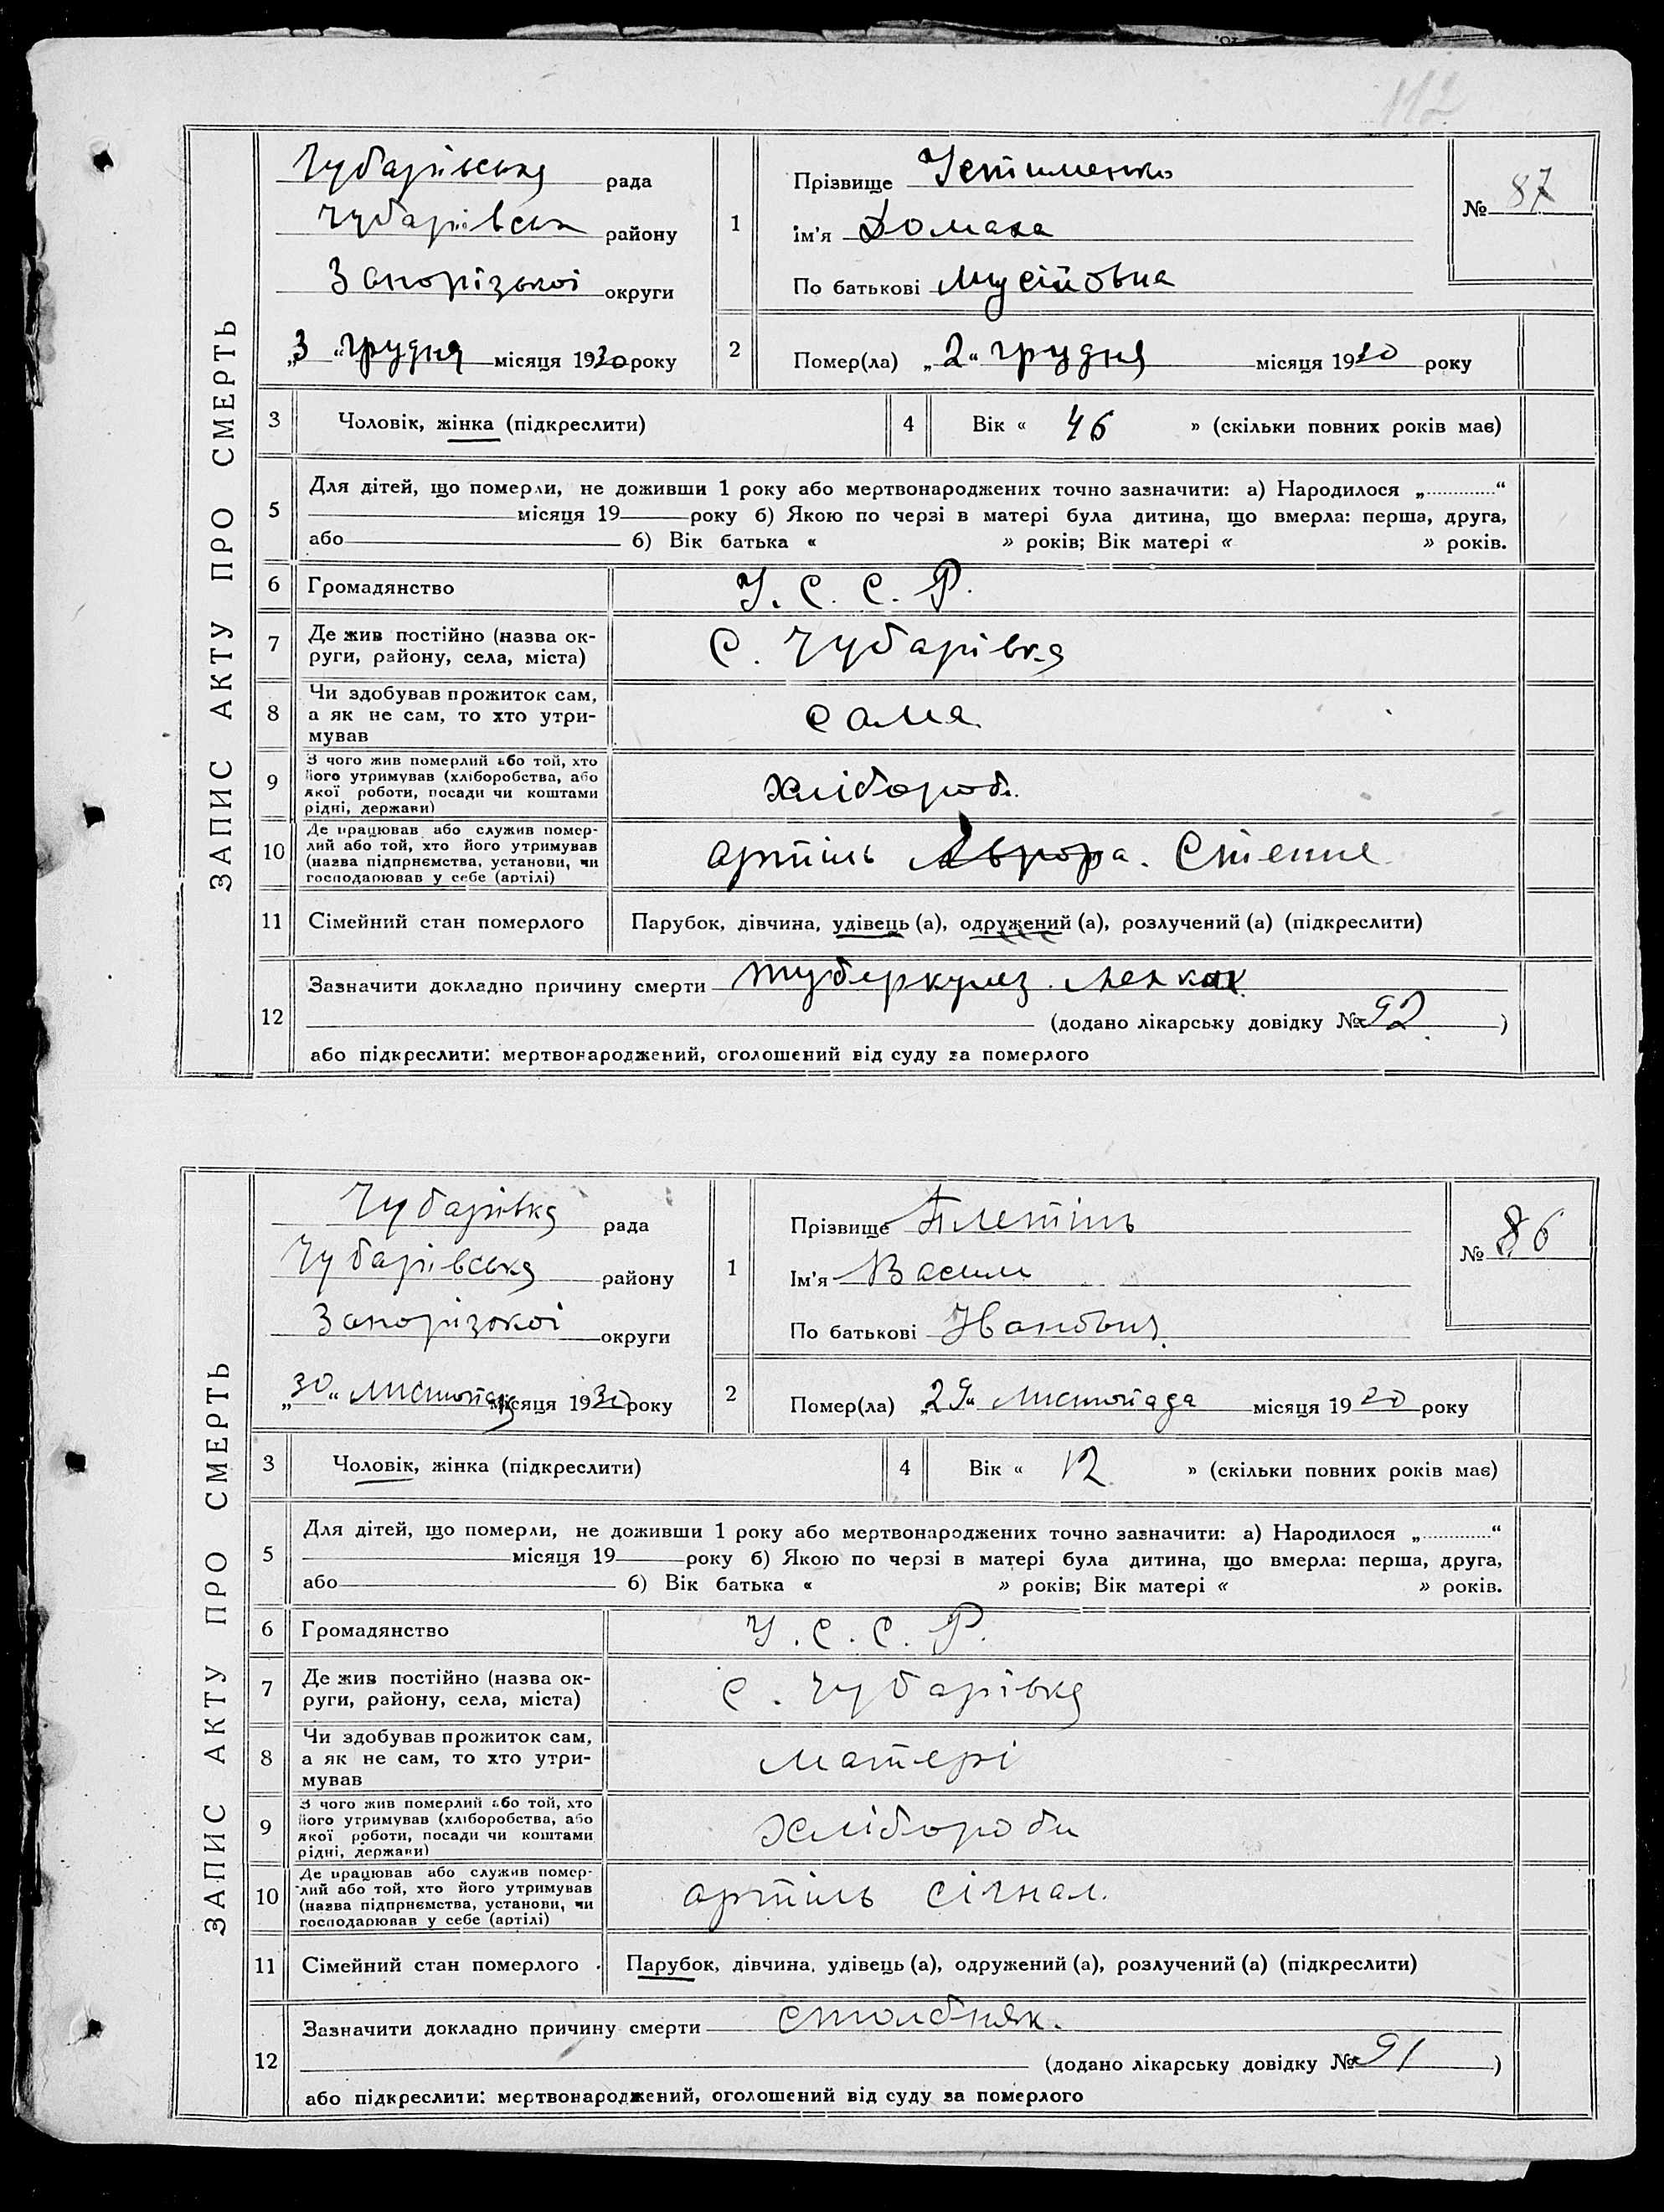 112
ЗАПИС АКТУ ПРО СМЕРТЬ
Чубарівська рада
Чубарівськ району
Запорізької округи
„3“ грудня місяця 1930 року
1
Прізвище Устименко
ім'я Домаха
По батькові Мусійовна
№ 87
2
Помер(ла) „2“ грудня місяця 1930 року
3 Чоловік, жінка (підкреслити)
4 Вік « 46 » (скільки повних років має)
5 Для дітей, що померли, не доживши 1 року або мертвонароджених точно зазначити: а) Народилося „............“
місяця 19 року б) Якою по черзі в матері була дитина, що вмерла: перша, друга,
або б) Вік батька « » років; Вік матері « » років.
6 Громадянство У. С. С. Р.
7 Де жив постійно (назва ок-
руги, району, села, міста) С. Чубарівка
8 Чи здобував прожиток сам,
а як не сам, то хто утри-
мував сама
9 З чого жив померлий або той, хто
його утримував (хліборобства, або
якої роботи, посади чи коштами
рідні, держави) хлібороб.
10 Де працював або служив помер-
лий або той, хто його утримував
(назва підприємства, установи, чи
господарював у себе (артілі) артіль Аврора. Степне
11 Сімейний стан померлого Парубок, дівчина, удівець (а), одружений (а), розлучений (а) (підкреслити)
12 Зазначити докладно причину смерти туберкулез легких
(додано лікарську довідку № 92 )
або підкреслити: мертвонароджений, оголошений від суду за померлого
ЗАПИС АКТУ ПРО СМЕРТЬ
Чубарівка рада
Чубарівська району
Запорізкої округи
„30“ листопада місяця 1930 року
1
Прізвище Плетінь
Ім'я Васили
По батькові Иванович
№ 86
2
Помер(ла) „29“ листопада місяця 1930 року
3 Чоловік, жінка (підкреслити)
4 Вік « 12 » (скільки повних років має)
5 Для дітей, що померли, не доживши 1 року або мертвонароджених точно зазначити: а) Народилося „............“
місяця 19 року б) Якою по черзі в матері була дитина, що вмерла: перша, друга,
або б) Вік батька « » років; Вік матері « » років.
6 Громадянство У. С. С. Р.
7 Де жив постійно (назва ок-
руги, району, села, міста) С. Чубарівка
8 Чи здобував прожиток сам,
а як не сам, то хто утри-
мував матері
9 З чого жив померлий або той, хто
його утримував (хліборобства, або
якої роботи, посади чи коштами
рідні, держави) хлібороби
10 Де працював або служив помер-
лий або той, хто його утримував
(назва підприємства, установи, чи
господарював у себе (артілі) артіль сігнал.
11 Сімейний стан померлого Парубок, дівчина, удівець (а), одружений (а), розлучений (а) (підкреслити)
12 Зазначити докладно причину смерти столбняк.
(додано лікарську довідку № 91 )
або підкреслити: мертвонароджений, оголошений від суду за померлого